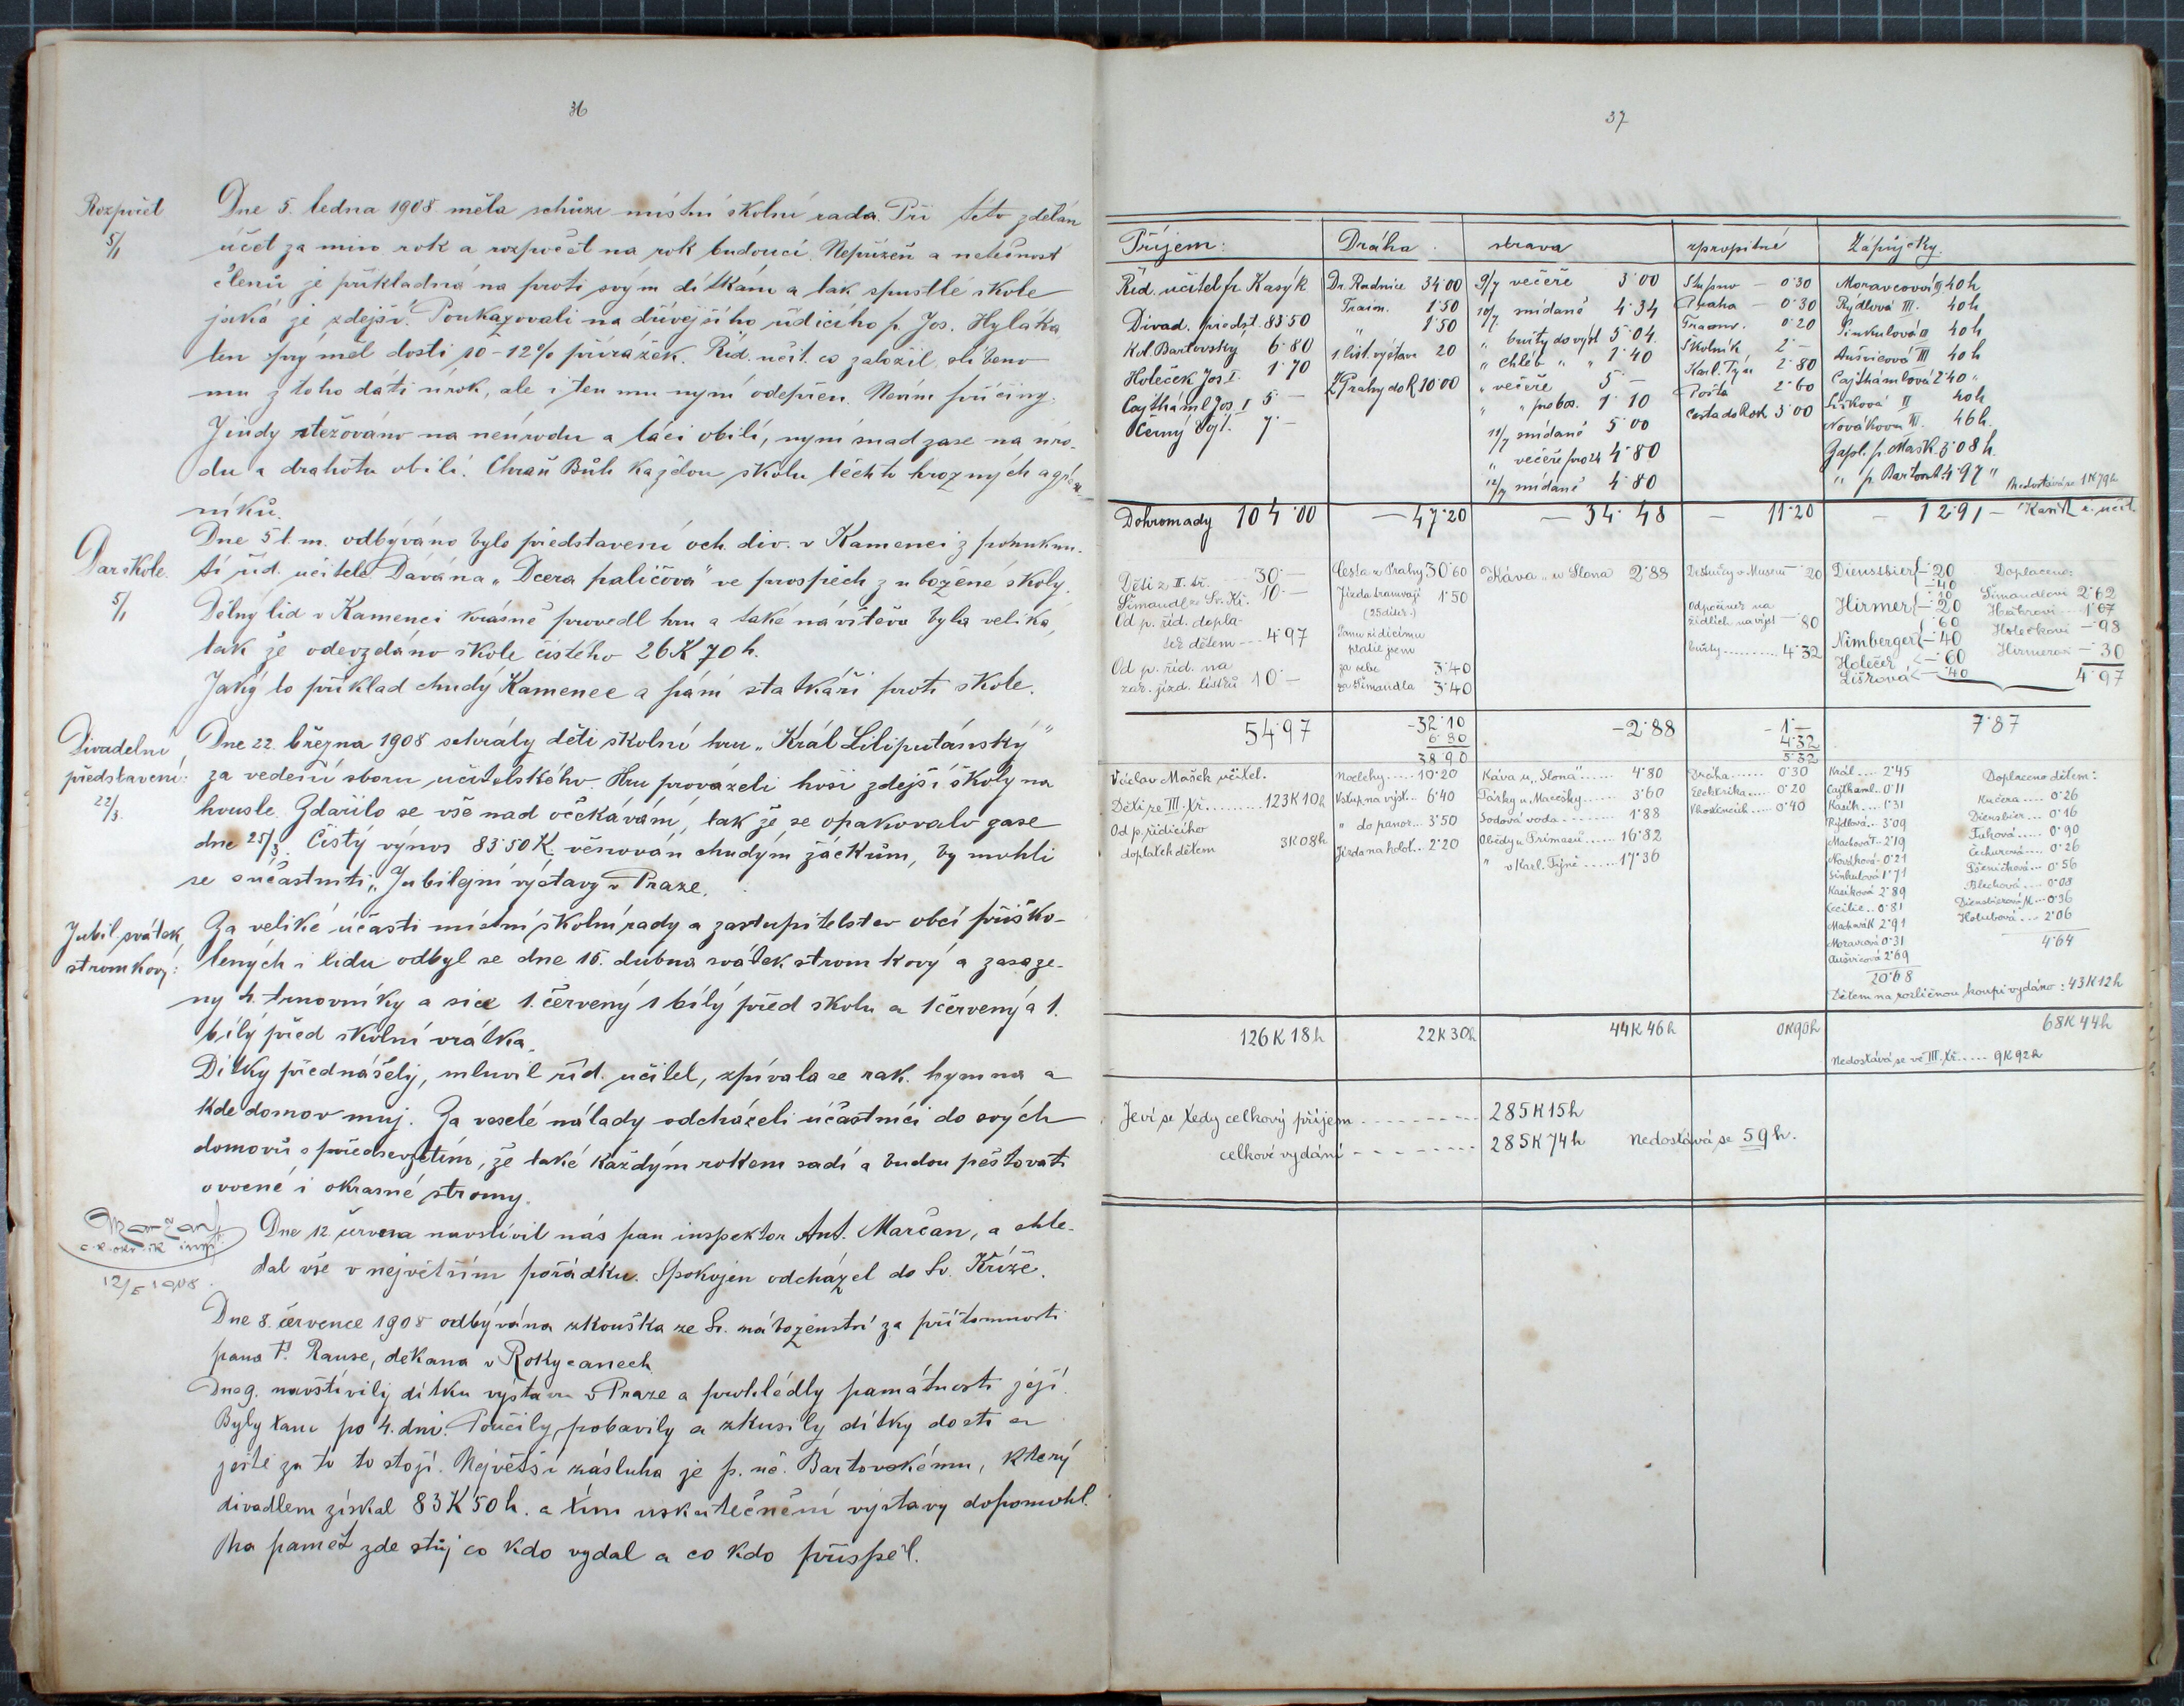 36
Rozpočet
5/1
Dne 5. ledna 1908 měla schůzi místní školní rada. Při této zdělán
účet za min. rok a rozpočet na rok budoucí. Nepřízeň a netečnost
členů je příkladná na proti svým dítkám a tak spustlé škole
jaká je zdejší. Poukazovali na dřívějšího řídícího p. Jos. Hyláka,
ten prý měl dosti 10-12% přirážek. Říd. učit. co založil, slíbeno
mu z toho dáti úrok, ale i ten mu nyní odepřen. Není příčiny.
Jindy stěžováno na neúrodu a láci obilí, nyní snad zase na úro-
du a drahotu obilí. Chraň Bůh každou školu těchto hrozných
níků.
Dar škole.
5/1
Dne 5 t. m. odbýváno bylo představení och. div. v Kamenci z ponuknu-
tí říd. učitele. Dávána „Dcera paličova" ve prospěch zubožené školy.
Dělný lid v Kamenci krásně provedl hru a také návštěva byla veliká,
tak že odevzdáno škole čistého 26 K 70 h.
Jaký to příklad chudý Kamenec a páni statkáři proti škole.
Divadelní
představení:
22/3.
Dne 22. března 1908 sehrály děti školní hru „Král Liliputánský"
za vedení sboru učitelského. Hru provázeli hoši zdejší školy na
housle. Zdařilo se vše nad očekávání, tak že se opakovalo zase
dne 25/3. Čistý výnos 83·50 K. věnován chudým žáčkům, by mohli
se súčastniti „Jubilejní výstavy v Praze.
Jubil. svátek
stromkový:
Za veliké účasti místní školní rady a zastupitelstev obcí přiško-
lených i lidu odbyl se dne 15. dubna svátek stromkový a zasaze-
ny 4. trnovníky a sice 1. červený 1 bílý před školu a 1 červený a 1.
bílý před školní vrátka.
Dítky přednášely, mluvil říd. učitel, zpívala se rak. hymna a
Kde domov můj. Za veselé nálady odcházeli účastníci do svých
domovů s předsevzetím, že také každým rokem sadí a budou pěstovati
ovocné i okrasné stromy.
12/5 1908.
Dne 12. června navštívil nás pan inspektor Ant. Marčan, a shle-
dal vše v největším pořádku. Spokojen odcházel do Sv. Kříže.
Dne 8. července 1908 odbývána zkouška ze Sv. náboženství za přítomnosti
pana F. Rause, děkana v Rokycanech.
Dne 9. navštívily dítky výstavu v Praze a prohlédly památnosti její.
Byly tam po 4. dni. Poučily, pobavily a zkusily dítky dosti a
ještě za to to stojí. Největší zásluha je p. uč. Bartovskému, který
divadlem získal 83 K 50 h. a tím uskutečnění výstavy dopomohl.
Na paměť zde stůj co kdo vydal a co kdo přispěl.
37
Příjem: Dráha strava zpropitné Zápůjčky.
Říd. učitel fr. Kasýk Dr. Radnice 34·00 9/7 večeře 3·00 Stupno — 0·30 Moravcová 40 h
Divad. předst. 83·50 Tram. 1·50 10/7. snídaně 4·34 Praha — 0·30 Rýdlová III. 40 h
Kol. Bartovský 6·80 " 1·50 " buřty do výst 5·04. Tramv. 0·20 Šinkulová II 40 h
Holeček Jos. I. 1·70 1 list. výstava 20 " chléb " " 1·40 Školník 2·— Aušvicová III 40 h
Cajthaml Jos. I 5— Z Prahy do R. 10·00 " večeře 5— Karl. Týn 2·80 Cajthamlová 2·40 "
Černý Vojt. 7— " " pro bos. 1·10 Pošta 2·60 Lišková II 40 h
11/7 snídaně 5·00 cesta do Rok 3·00 Novákova III. 46 h.
" večeře pro 24 4·80 Zapl. p. Mašk. 3·08 h.
12/7 snídaně 4·80 " p. Bartovs. 4·97 " Nedostává se 1K 79h
Dohromady 104·00 —47·20 —34·48 —11·20 — 12·91 — Kasík ř. učit.
Děti z II. tř. 30·— Cesta z Prahy 30·60 Káva „u Slona 2·88 Deštníky v Museu — 20 Dienstbier — 20 Doplaceno:
Šimandl ze Sv. Kř. 10·— Jízda tramvají 1·50 — 40 Šimandlovi 2·62
Od p. říd. dopla- (25dílov.) Odpočinek na Hirmer — 20 1·07
tek dětem — 4·97 Panu řídícímu židlích na výst — 80 60 Holečkovi — 98
Od p. říd. na platil jsem buřty 4·32 Nimberger — 40 Hirmerovi — 30
zak. jízd. lístků 10·— za sebe 3·40 Holeček — 60 4·97
za Šimandla 3·40 Lišková — 40
54·97 -32·10 -2·88 -1·— 7·87
6·80 4·32
38·90 5·32
Václav Mašek učitel. Noclehy 10·20 Káva u „Slona" 4·80 Dráha 0·30 Král 2·45 Doplaceno dětem:
Děti ze III. tř. 123K 10h Vstup na výst. 6·40 Párky u Macešky 3·60 Elektrika 0·20 Cajthaml 0·11 Kučera 0·26
Od p. řídicího " do panor. 3·50 Sodová voda 1·88 0·40 Kasík 1·31 Diensbier 0·16
doplatek dětem 3K 08h Jízda na kolot. 2·20 Obědy u Primasů 16·82 Rýdlová 3·09 Tuhová 0·90
" v Karl. Týně 17·36 Machová T. 2·19 Čechurová 0·26
Nováková 0·21 Pšeničková 0·56
Šinkulová 1·71 Blechová 0·08
Kasíková 2·89 Diensbierová M. 0·36
Cecilie 0·81 Holubová 2·06
Machová K 2·91 4·64
Moravcová 0·31
Aušvicová 2·69
20·68
Dětem na rozličnou koupi vydáno: 43K 12h
126 K 18 h 22 K 30 h 44 K 46 h 0K 90h 68K 44h
Nedostává se ve III. tř. 9K 92h
Jeví se tedy celkový příjem 285 K 15 h
celkové vydání 285 K 74 h Nedostává se 59 h.